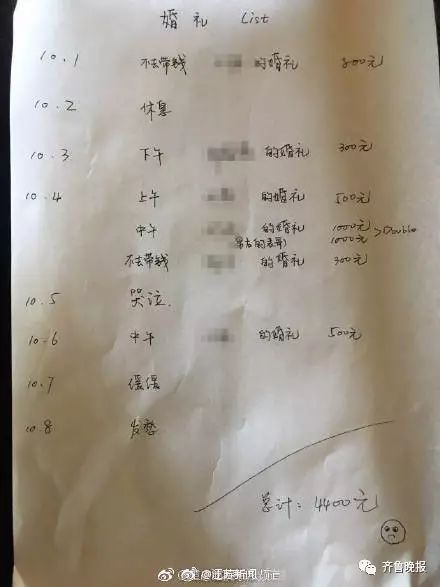 婚礼 List
10.1 不去带钱 的婚礼 800元
10.2 休息
10.3 下午 的婚礼 300元
10.4 上午 的婚礼 500元
中午 的婚礼 1000元 >Double
1000元
不去带钱 的婚礼 300元
10.5 哭泣.
10.6 中午 的婚礼 500元
10.7 缓缓
10.8 发愁
总计: 4400元
@江苏新闻
齐鲁晚报